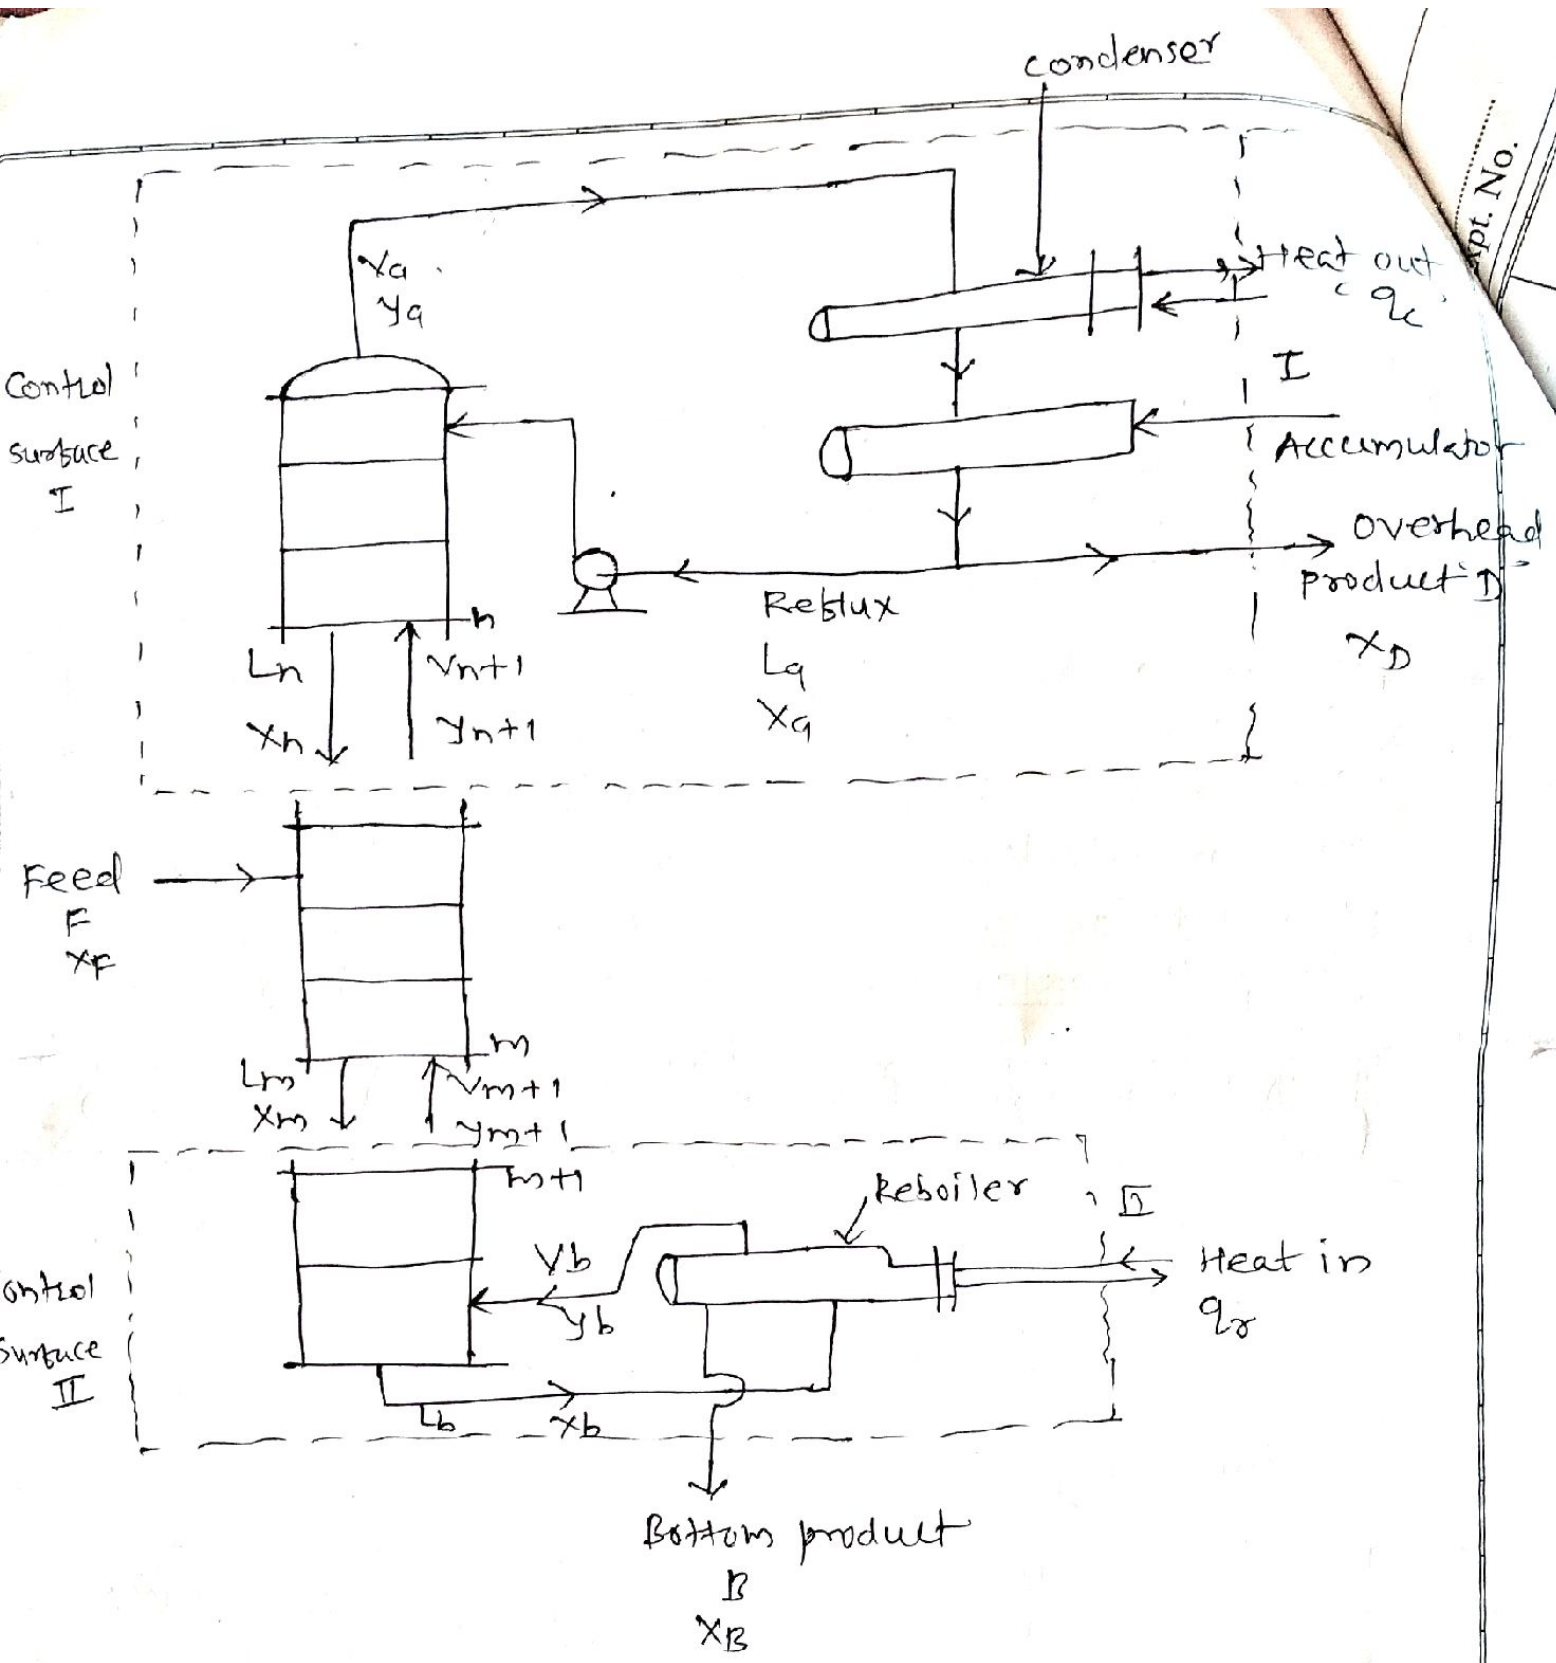 condenser
Expt. No.
Va
ya
Heat out
qc
Control
surface
I
I
Accumulator
overhead
product D
XD
Reflux
La
Xa
n
Ln
Vn+1
Xn
yn+1
Feed
F
XF
m
Lm
Vm+1
Xm
ym+1
m+1
Reboiler
II
Vb
yb
Heat in
qr
ontrol
surface
II
Lb
Xb
Bottom product
B
XB